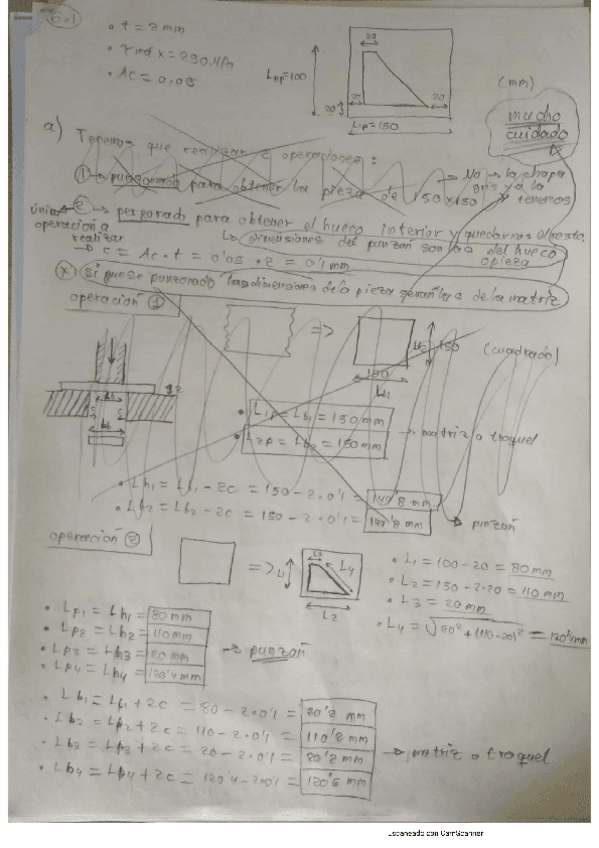 6.1
• t = 2 mm
• τ ind x = 290 MPa
• Ac = 0,05
20
Lop = 100
20
20
20
L1p = 150
(mm)
mucho
cuidado
a) Tenemos que realizar 2 operaciones:
① → punzonado para obtener la pieza de 150x150 → No → la chapa
gris ya la
tenemos
única
operación a
realizar
② → perforado para obtener el hueco interior y quedarnos el resto.
↳ dimensiones del punzón son las del hueco
o pieza
→ c = Ac · t = 0'05 · 2 = 0'1 mm
(*) si fuese punzonado las dimensiones de la pieza serían las de la matriz
operación ①
=>
L2 = 150
150
L1
(cuadrado)
• L1p = Lb1 = 150 mm
• L2p = Lb2 = 150 mm
→ matriz o troquel
• Lh1 = Lb1 - 2c = 150 - 2·0'1 = 149'8 mm
• Lh2 = Lb2 - 2c = 150 - 2·0'1 = 149'8 mm
→ punzón
operación ②
=>
L1
L3
L4
L2
• L1 = 100 - 20 = 80 mm
• L2 = 150 - 2·20 = 110 mm
• L3 = 20 mm
• L4 = √80² + (110-20)² = 120'4 mm
• Lp1 = Lh1 = 80 mm
• Lp2 = Lh2 = 110 mm
• Lp3 = Lh3 = 20 mm
• Lp4 = Lh4 = 120'4 mm
→ punzón
• Lb1 = Lp1 + 2c = 80 - 2·0'1 = 80'2 mm
• Lb2 = Lp2 + 2c = 110 - 2·0'1 = 110'2 mm
• Lb3 = Lp3 + 2c = 20 - 2·0'1 = 20'2 mm
• Lb4 = Lp4 + 2c = 120'4 - 2·0'1 = 120'6 mm
→ matriz o troquel
Escaneado con CamScanner